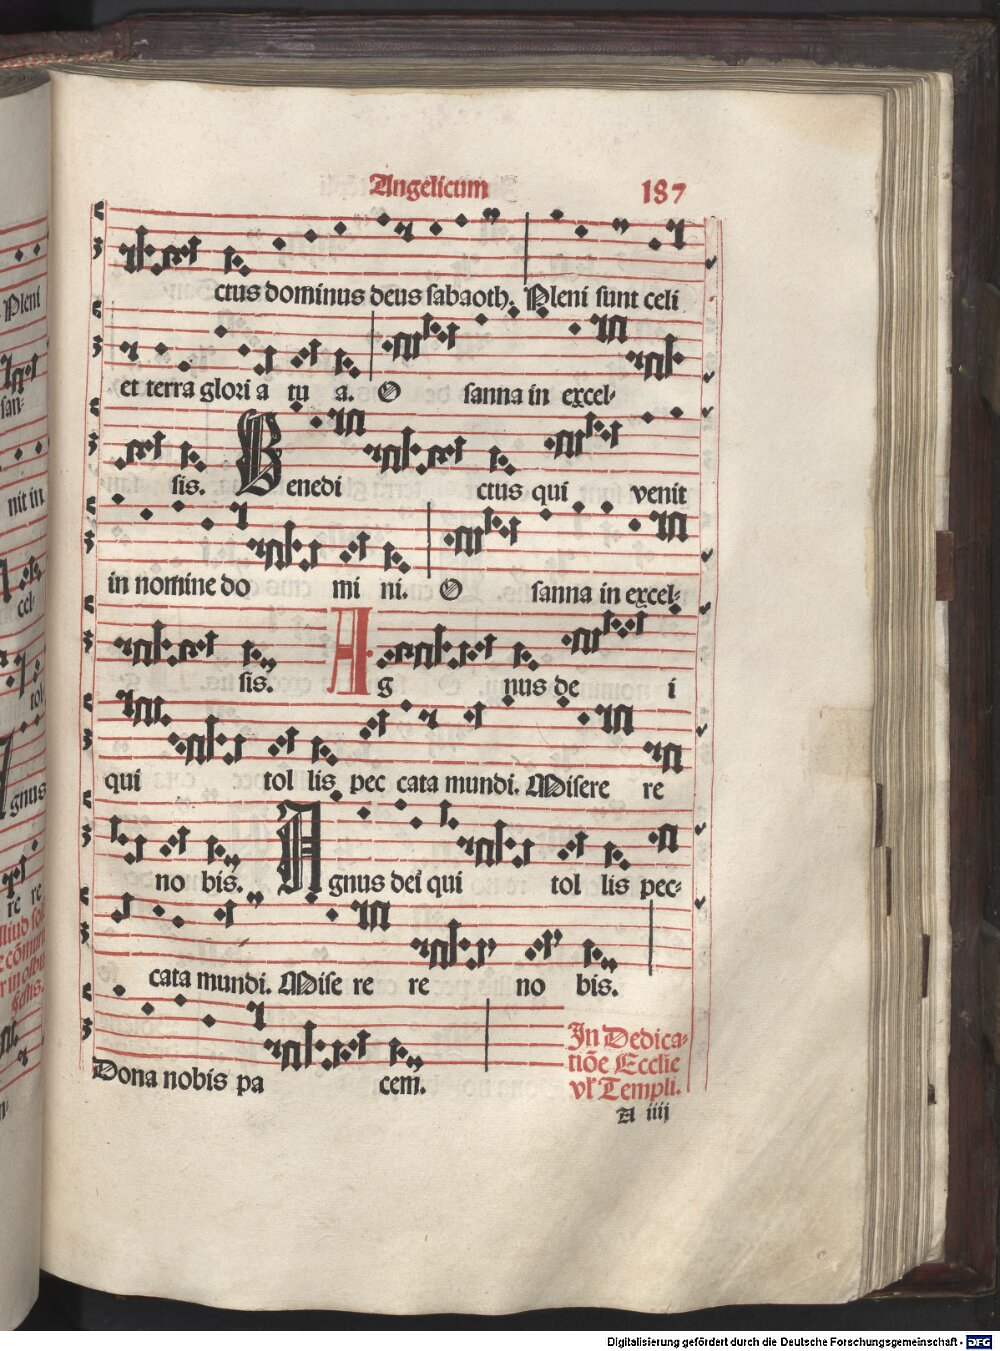 Angelicum 187
ctus dominus deus sabaoth. Pleni sunt celi
et terra glori a tu a. O sanna in excel-
sis. Benedi ctus qui venit
in nomine do mi ni. O sanna in excel-
sis. Ag nus de i
qui tol lis pec cata mundi. Misere re
no bis. Agnus dei qui tol lis pec-
cata mundi. Mise re re no bis.
Dona nobis pa cem.
In Dedica-
tiõe Eccl'ie
vl' Templi.
A iiij
Pleni
san-
nit in
cel-
tol
gnus
re re
Digitalisierung gefördert durch die Deutsche Forschungsgemeinschaft - DFG